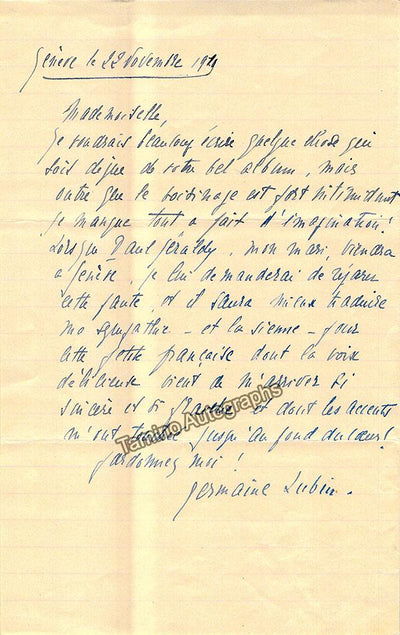 Genève le 22 Novembre 19
Mademoiselle,
je voudrais beaucoup écrire quelque chose qui
soit digne de votre bel album, mais
outre que le voisinage est fort intimidant
je manque tout à fait d'imagination!
Lorsque Paul Géraldy, mon mari, viendra
à Genève, je lui demanderai de réparer
cette faute, et il saura mieux traduire
ma sympathie - et la sienne - pour
cette petite française dont la voix
délicieuse vient de m'arriver si
sincère et si et dont les accents
m'ont touchée jusqu'au fond du cœur!
pardonnez moi!
Germaine Lubin.
Tamino Autographs